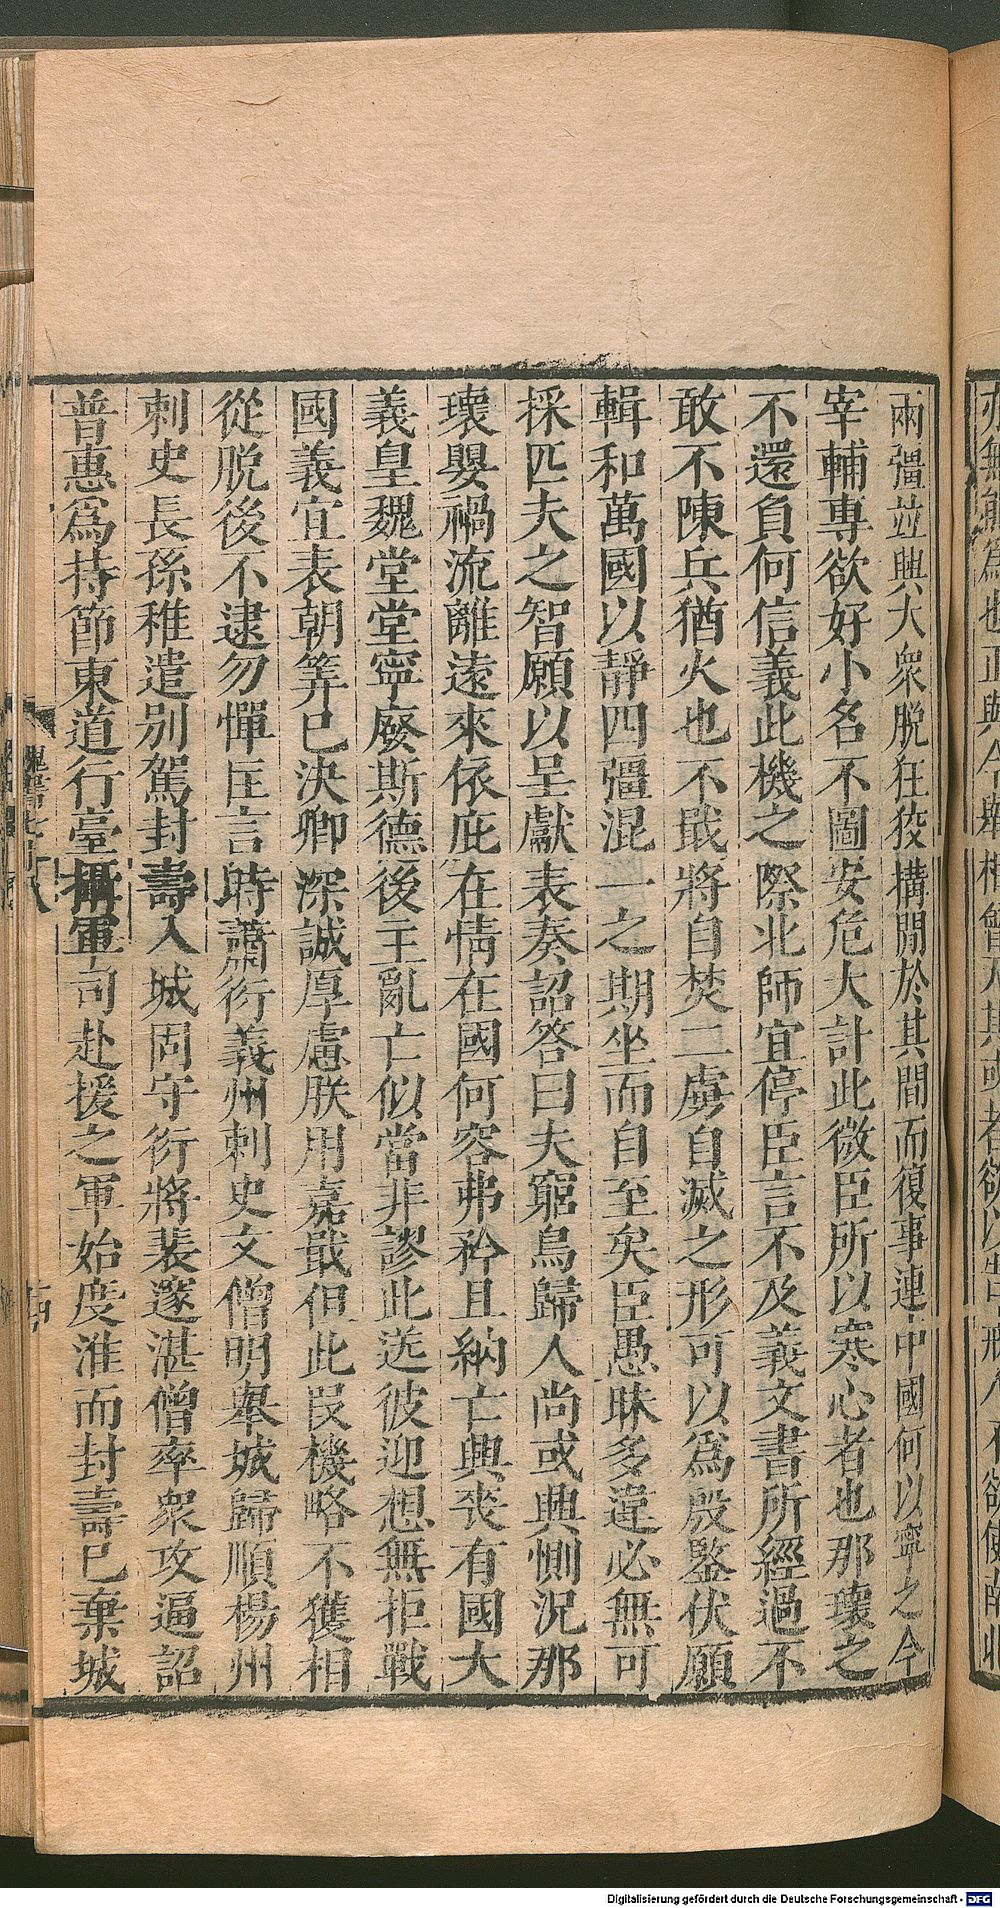 兩彊竝興大衆脫狂狡構間於其間而復事連中國何以寧之今
宰輔專欲好小名不圖安危大計此微臣所以寒心者也那瓌之
不還負何信義此機之際北師宜停臣言不及義文書所經過不
敢不陳兵猶火也不戢將自焚二虜自滅之形可以爲殷鑒伏願
輯和萬國以靜四彊混一之期坐而自至矣臣愚昧多違必無可
採匹夫之智願以呈獻表奏詔答曰夫窮鳥歸人尚或興惻況那
瓌嬰禍流離遠來依庇在情在國何容弗矜且納亡興喪有國大
義皇魏堂堂寧廢斯德後主亂亡似當非謬此送彼迎想無拒戰
國義宜表朝筭已決卿深誠厚慮朕用嘉戢但此段機略不獲相
從脫後不逮勿憚匡言時蕭衍義州刺史文僧明舉城歸順楊州
刺史長孫稚遣別駕封壽入城固守衍將裴邃湛僧率衆攻逼詔
普惠爲持節東道行臺攝軍司赴援之軍始度淮而封壽已棄城
Digitalisierung gefördert durch die Deutsche Forschungsgemeinschaft - DFG